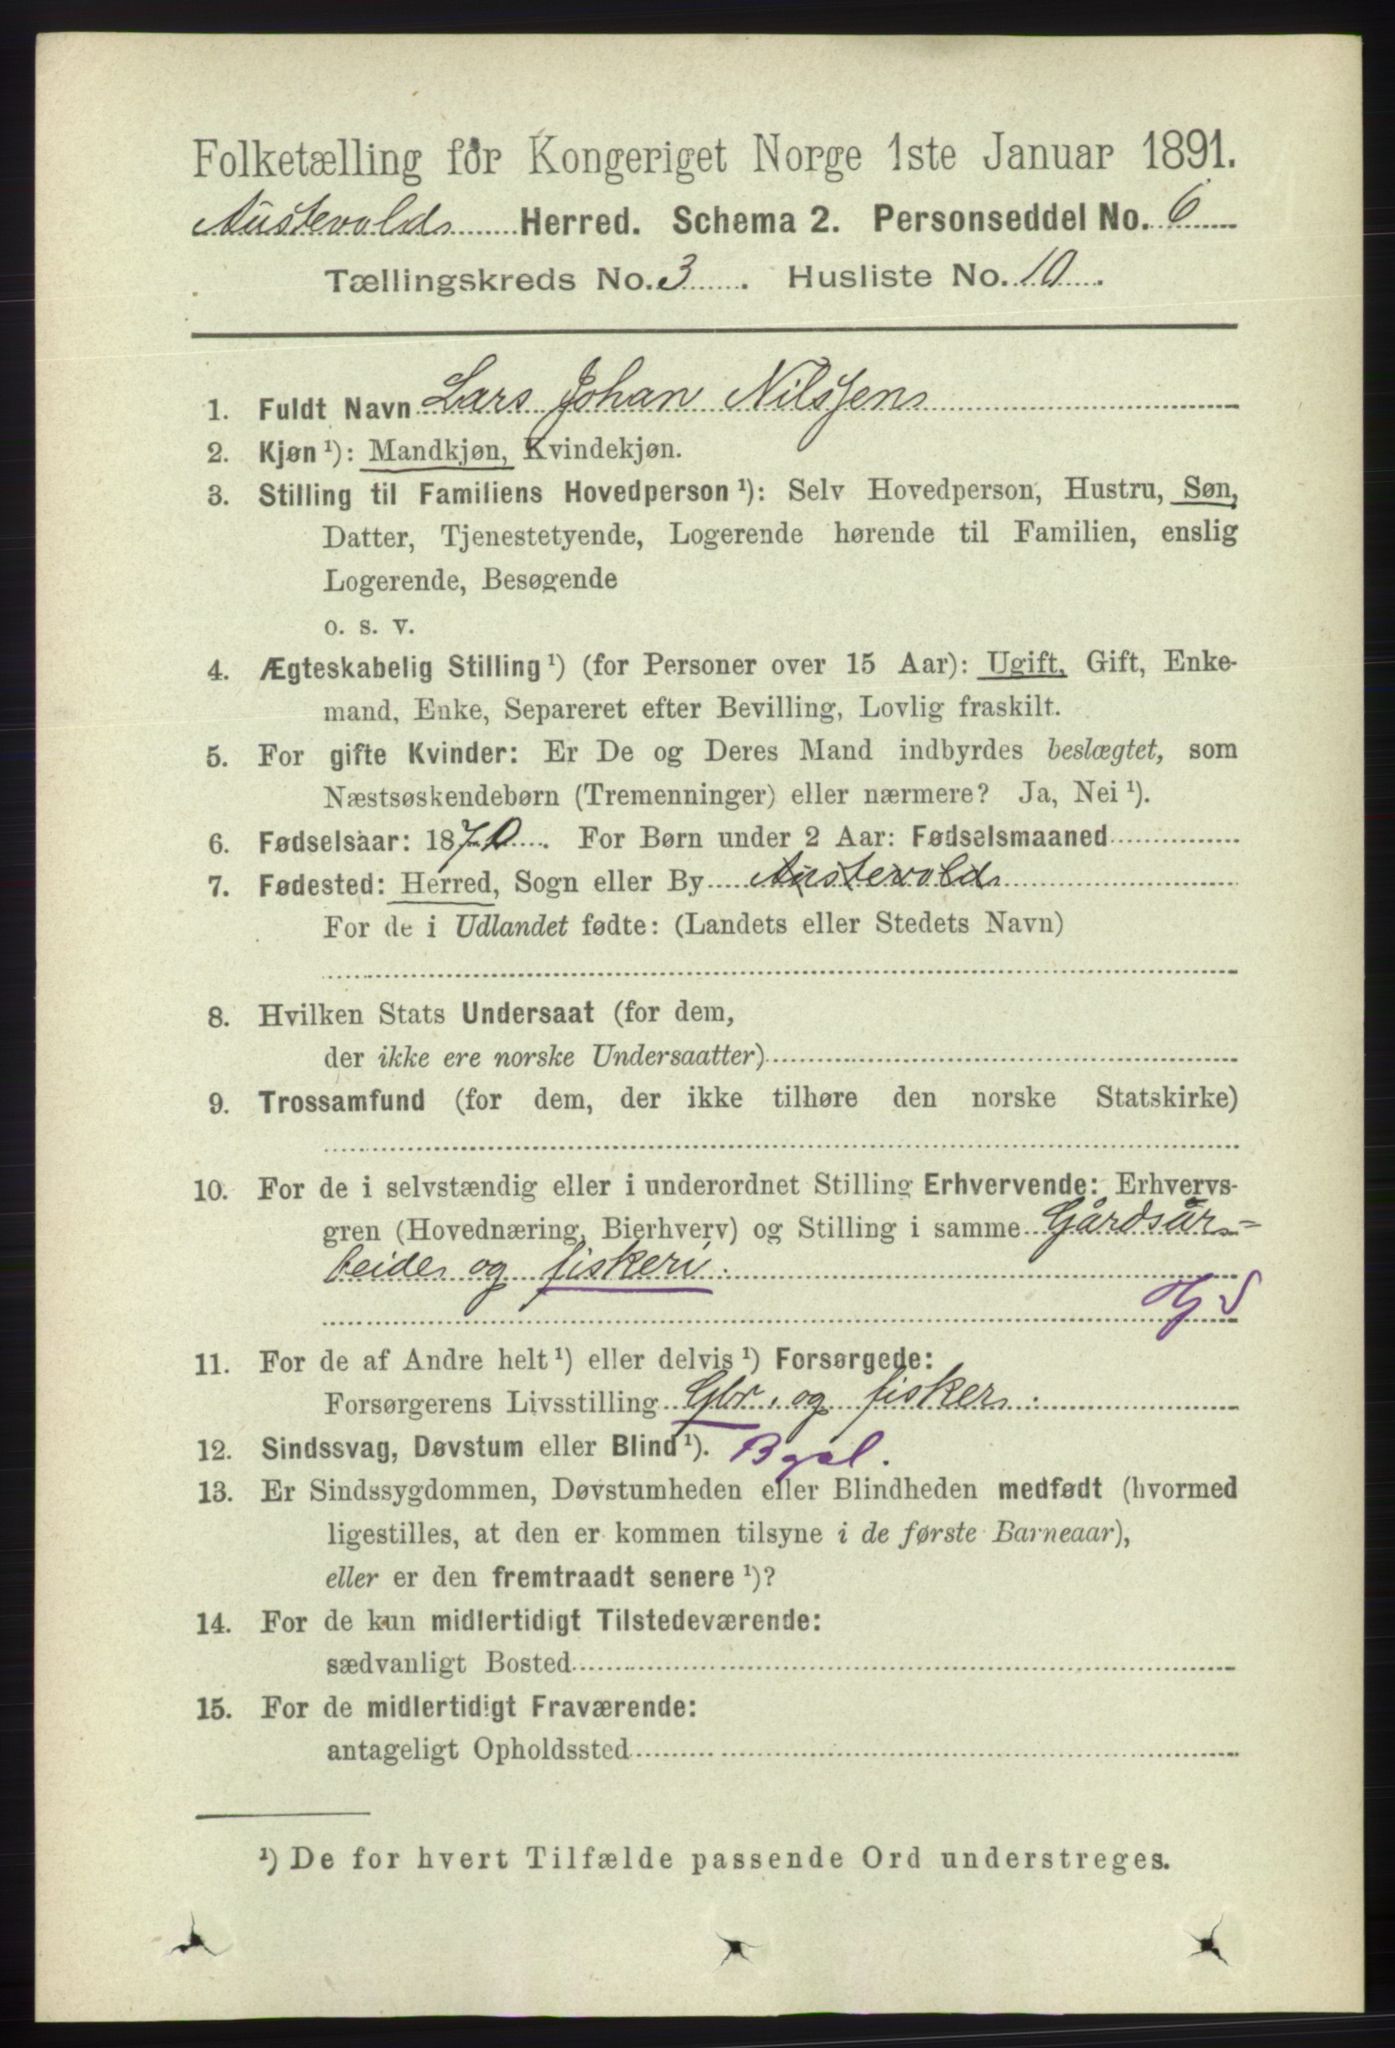 Folketælling for Kongeriget Norge 1ste Januar 1891.
Austevold Herred. Schema 2. Personseddel No. 6
Tællingskreds No. 3. Husliste No. 10.
1. Fuldt Navn Lars Johan Nilssen
2. Kjøn ¹): Mandkjøn, Kvindekjøn.
3. Stilling til Familiens Hovedperson ¹): Selv Hovedperson, Hustru, Søn,
Datter, Tjenestetyende, Logerende hørende til Familien, enslig
Logerende, Besøgende
o. s. v.
4. Ægteskabelig Stilling ¹) (for Personer over 15 Aar): Ugift, Gift, Enke-
mand, Enke, Separeret efter Bevilling, Lovlig fraskilt.
5. For gifte Kvinder: Er De og Deres Mand indbyrdes beslægtet, som
Næstsøskendebørn (Tremenninger) eller nærmere? Ja, Nei ¹).
6. Fødselsaar: 1870. For Børn under 2 Aar: Fødselsmaaned
7. Fødested: Herred, Sogn eller By Austevold
For de i Udlandet fødte: (Landets eller Stedets Navn)
8. Hvilken Stats Undersaat (for dem,
der ikke ere norske Undersaatter)
9. Trossamfund (for dem, der ikke tilhøre den norske Statskirke)
10. For de i selvstændig eller i underordnet Stilling Erhvervende: Erhvervs-
gren (Hovednæring, Bierhverv) og Stilling i samme Gårdsar=
beide og fiskeri.
11. For de af Andre helt ¹) eller delvis ¹) Forsørgede:
Forsørgerens Livsstilling Gbr. og fisker.
12. Sindssvag, Døvstum eller Blind ¹).
13. Er Sindssygdommen, Døvstumheden eller Blindheden medfødt (hvormed
ligestilles, at den er kommen tilsyne i de første Barneaar),
eller er den fremtraadt senere ¹)?
14. For de kun midlertidigt Tilstedeværende:
sædvanligt Bosted
15. For de midlertidigt Fraværende:
antageligt Opholdssted
¹) De for hvert Tilfælde passende Ord understreges.